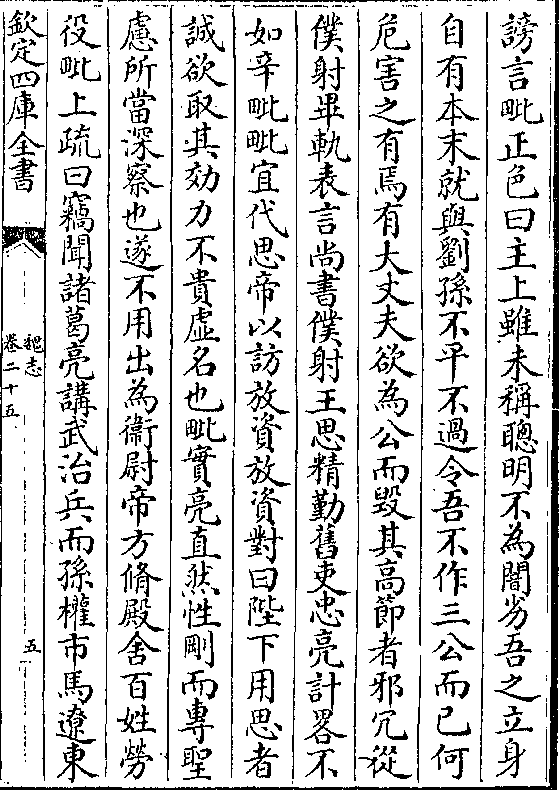 謗言毗正色曰主上雖未稱聰明不為闇劣吾之立身
自有本末就與劉孫不平不過令吾不作三公而已何
危害之有焉有大丈夫欲為公而毀其高節者邪冗從
僕射畢軌表言尚書僕射王思精勤舊吏忠亮計畧不
如辛毗毗宜代思帝以訪放資放資對曰陛下用思者
誠欲取其効力不貴虛名也毗實亮直然性剛而專聖
慮所當深察也遂不用出為衞尉帝方脩殿舍百姓勞
役毗上疏曰竊聞諸葛亮講武治兵而孫權市馬遼東
欽定四庫全書
魏志
卷二十五
五